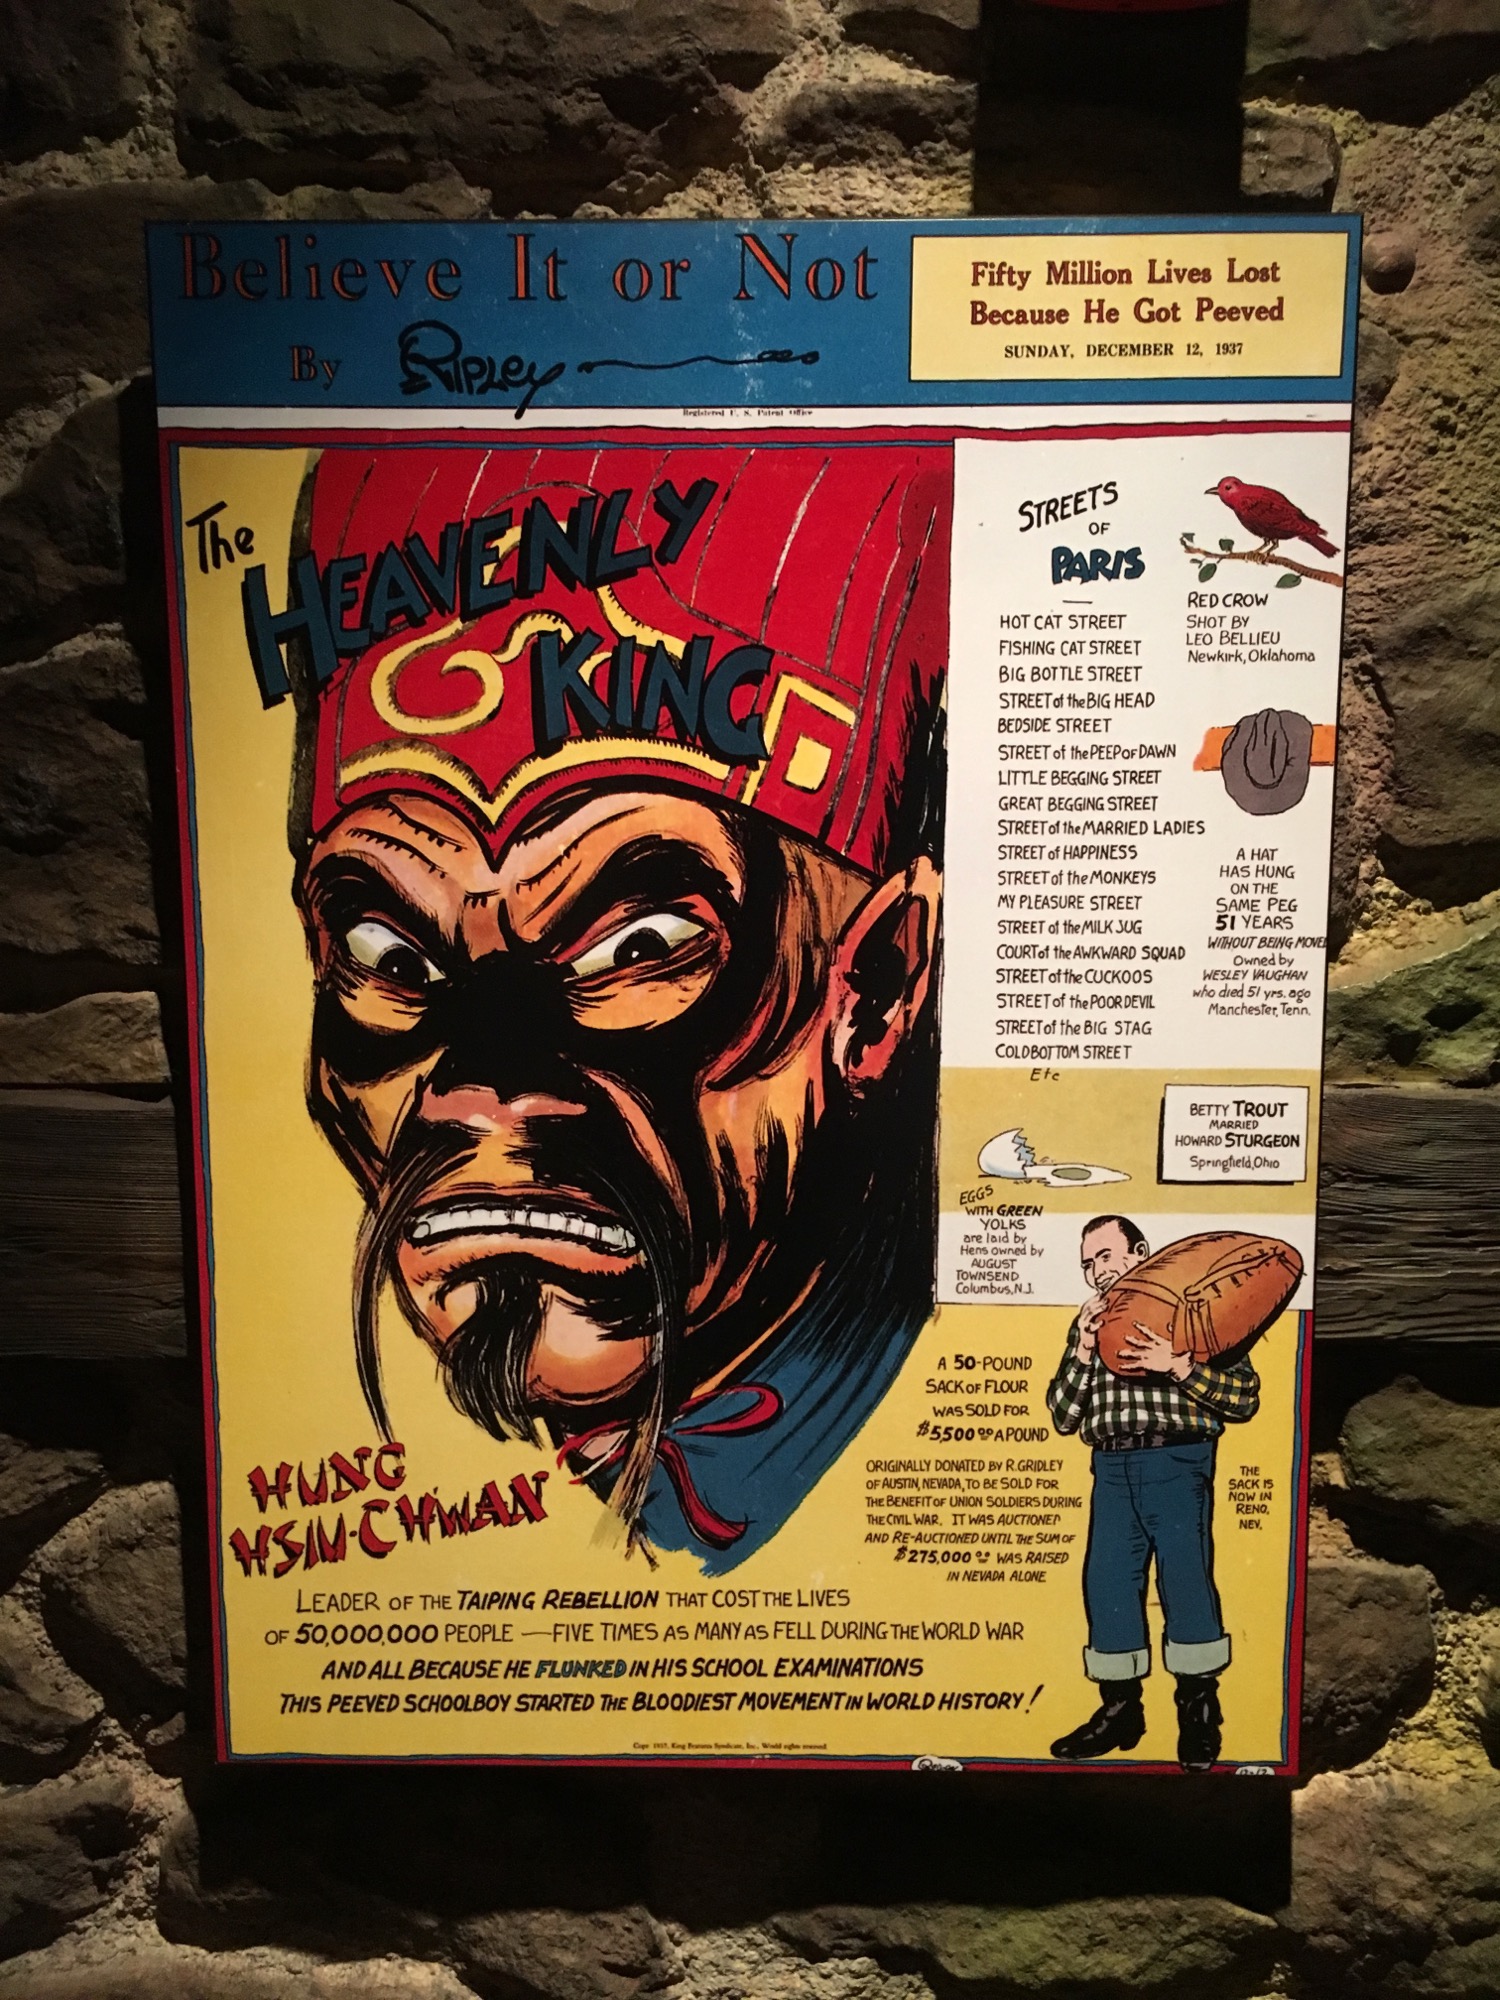 Believe It or Not
By Ripley
Fifty Million Lives Lost
Because He Got Peeved
SUNDAY, DECEMBER 12, 1937
Registered U. S. Patent Office
The
HEAVENLY
KING
HUNG
HSIU-CHWAN
LEADER OF THE TAIPING REBELLION THAT COST THE LIVES
OF 50,000,000 PEOPLE — FIVE TIMES AS MANY AS FELL DURING THE WORLD WAR
AND ALL BECAUSE HE FLUNKED IN HIS SCHOOL EXAMINATIONS
THIS PEEVED SCHOOLBOY STARTED THE BLOODIEST MOVEMENT IN WORLD HISTORY!
Copr. 1937, King Features Syndicate, Inc., World rights reserved
STREETS
OF
PARIS
HOT CAT STREET
FISHING CAT STREET
BIG BOTTLE STREET
STREET of the BIG HEAD
BEDSIDE STREET
STREET of the PEEP OF DAWN
LITTLE BEGGING STREET
GREAT BEGGING STREET
STREET of the MARRIED LADIES
STREET of HAPPINESS
STREET of the MONKEYS
MY PLEASURE STREET
STREET of the MILK JUG
COURT of the AWKWARD SQUAD
STREET of the CUCKOOS
STREET of the POOR DEVIL
STREET of the BIG STAG
COLDBOTTOM STREET
Etc
RED CROW
SHOT BY
LEO BELLIEU
Newkirk, Oklahoma
A HAT
HAS HUNG
ON THE
SAME PEG
51 YEARS
WITHOUT BEING MOVED
Owned by
WESLEY VAUGHAN
who died 51 yrs. ago
Manchester, Tenn.
BETTY TROUT
MARRIED
HOWARD STURGEON
Springfield, Ohio
EGGS
WITH GREEN
YOLKS
are laid by
Hens owned by
AUGUST
TOWNSEND
Columbus, N.J.
A 50-POUND
SACK OF FLOUR
WAS SOLD FOR
$5,500.00 A POUND
ORIGINALLY DONATED BY R. GRIDLEY
OF AUSTIN, NEVADA, TO BE SOLD FOR
THE BENEFIT OF UNION SOLDIERS DURING
THE CIVIL WAR. IT WAS AUCTIONED
AND RE-AUCTIONED UNTIL THE SUM OF
$275,000.00 WAS RAISED
IN NEVADA ALONE
THE
SACK IS
NOW IN
RENO,
NEV.
12-12